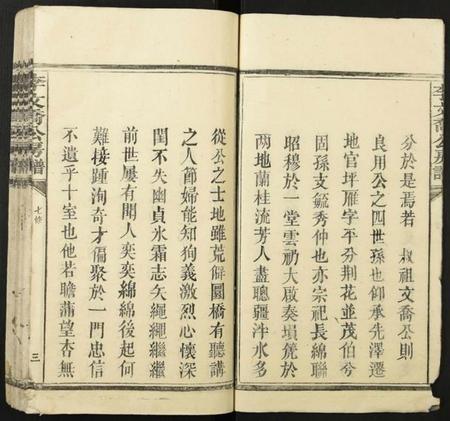 李文喬公房譜
分於是焉若 叔祖文喬公則
良用公之四世孫也仰承先澤遷
地官坪雁字平分荆花並茂伯兮
固孫支毓秀仲也亦宗祀長綿聯
昭穆於一堂雲礽大啟奏塤箎於
兩地蘭桂流芳人盡聰疆泮水多
從公之士地雖荒僻圜橋有聽講
之人節婦能知狗義激烈心懷深
閨不失幽貞氷霜志矢繩繩繼繼
前世屢有聞人奕奕綿綿後起何
難接踵洵奇才偏聚於一門忠信
不遺乎十室也他若瞻蒲望杏無
李文喬公房譜
七修
三